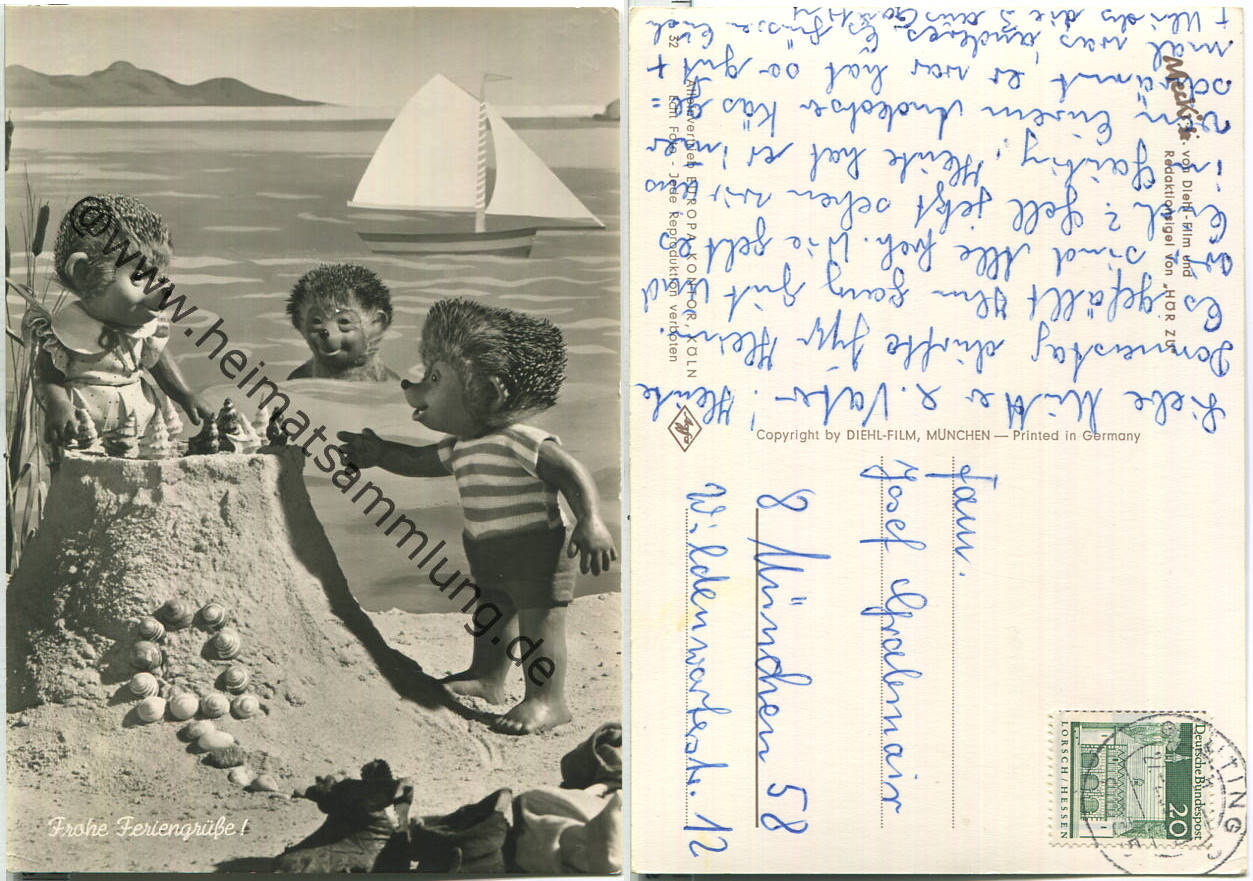 @www.heimatsammlung.de
Frohe Feriengrüße!
Mecki
. von Diehl-Film und
Redaktionsigel von „HÖR ZU"
32
Alleinvertrieb EUROPA-KONTOR, KÖLN
Echt Foto - Jede Reproduktion verboten
Agfa
Copyright by DIEHL-FILM, MÜNCHEN — Printed in Germany
Liebe Mutter u. Vater! Heute
Donnerstag dürfte Heim.
Es gefällt Ihm ganz gut und
sind Alle froh. Wie geht es
Euch? Gell jetzt sehen wir uns
in Gauting. Heute hat er immer
von Eurem Andechser Käs ge=
schwärmt er war halt so gut +
mal was anderes. Es grüssen Euch
die 3 aus Gauting
Fam.
Josef Grabmair
8 München 58
Wildenwarterstr. 12
Deutsche Bundespost
20
LORSCH/HESSEN
GAUTING